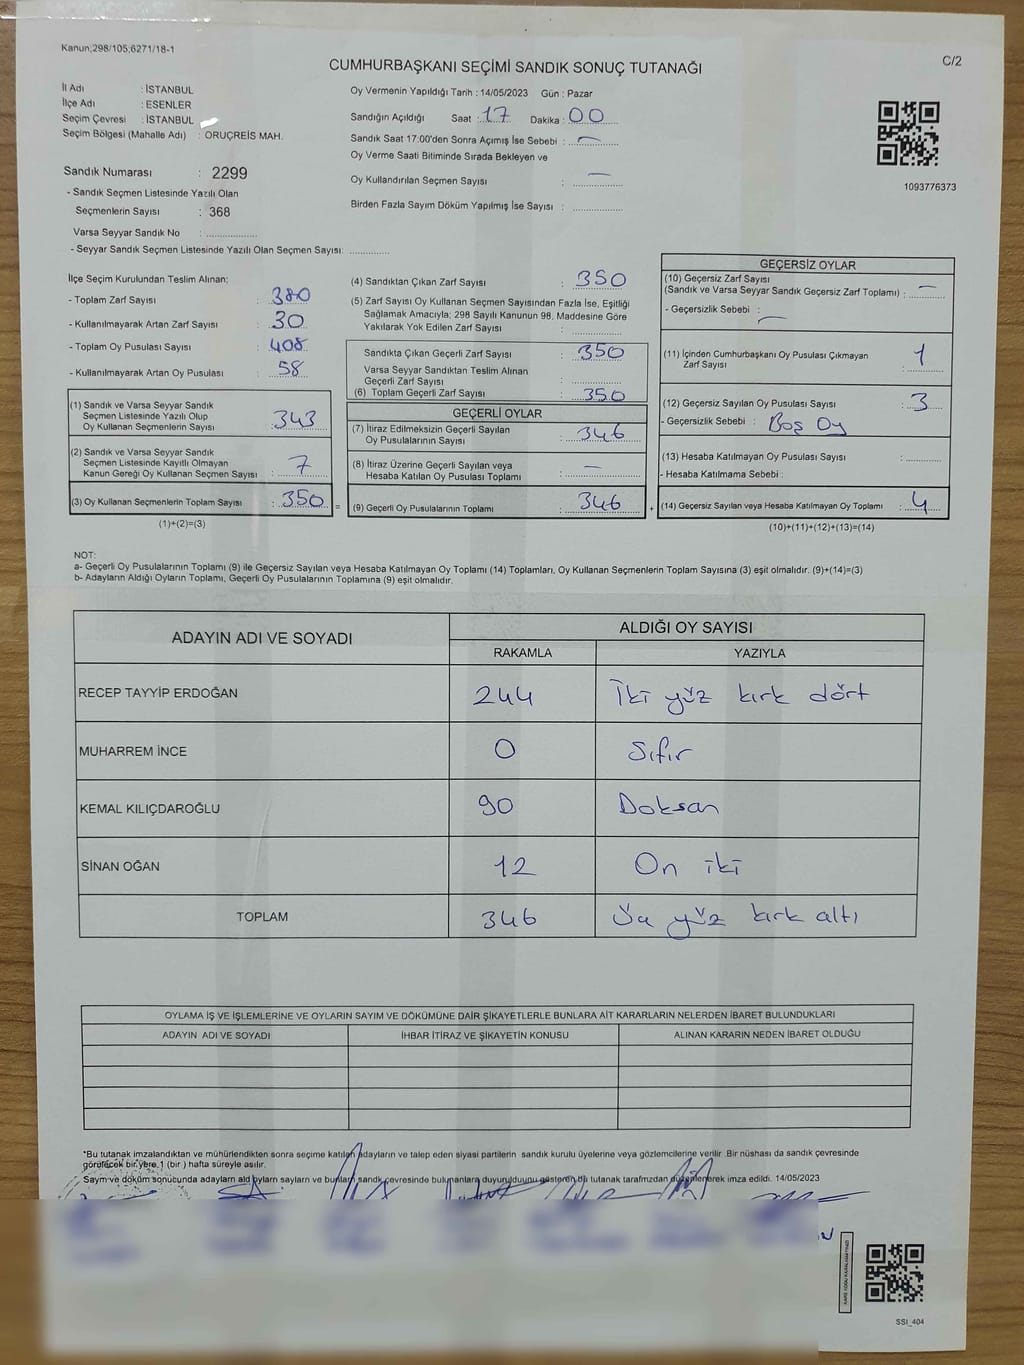 Kanun;298/105;6271/18-1
C/2
CUMHURBAŞKANI SEÇİMİ SANDIK SONUÇ TUTANAĞI
İl Adı : İSTANBUL
İlçe Adı : ESENLER
Seçim Çevresi : İSTANBUL
Seçim Bölgesi (Mahalle Adı) : ORUÇREİS MAH.
Oy Vermenin Yapıldığı Tarih : 14/05/2023 Gün : Pazar
Sandığın Açıldığı Saat : 17 Dakika : 00
Sandık Saat 17:00'den Sonra Açımış İse Sebebi : —
Oy Verme Saati Bitiminde Sırada Bekleyen ve
Oy Kullandırılan Seçmen Sayısı : —
Birden Fazla Sayım Döküm Yapılmış İse Sayısı :
1093776373
Sandık Numarası : 2299
- Sandık Seçmen Listesinde Yazılı Olan
Seçmenlerin Sayısı : 368
Varsa Seyyar Sandık No :
- Seyyar Sandık Seçmen Listesinde Yazılı Olan Seçmen Sayısı:
İlçe Seçim Kurulundan Teslim Alınan;
- Toplam Zarf Sayısı : 380
- Kullanılmayarak Artan Zarf Sayısı : 30
- Toplam Oy Pusulası Sayısı : 408
- Kullanılmayarak Artan Oy Pusulası : 58
(1) Sandık ve Varsa Seyyar Sandık
Seçmen Listesinde Yazılı Olup
Oy Kullanan Seçmenlerin Sayısı : 343
(2) Sandık ve Varsa Seyyar Sandık
Seçmen Listesinde Kayıtlı Olmayan
Kanun Gereği Oy Kullanan Seçmen Sayısı : 7
(3) Oy Kullanan Seçmenlerin Toplam Sayısı : 350 =
(1)+(2)=(3)
(4) Sandıktan Çıkan Zarf Sayısı : 350
(5) Zarf Sayısı Oy Kullanan Seçmen Sayısından Fazla İse, Eşitliği
Sağlamak Amacıyla; 298 Sayılı Kanunun 98. Maddesine Göre
Yakılarak Yok Edilen Zarf Sayısı :
Sandıkta Çıkan Geçerli Zarf Sayısı : 350
Varsa Seyyar Sandıktan Teslim Alınan
Geçerli Zarf Sayısı :
(6) Toplam Geçerli Zarf Sayısı : 350
GEÇERLİ OYLAR
(7) İtiraz Edilmeksizin Geçerli Sayılan
Oy Pusulalarının Sayısı : 346
(8) İtiraz Üzerine Geçerli Sayılan veya
Hesaba Katılan Oy Pusulası Toplamı : —
(9) Geçerli Oy Pusulalarının Toplamı : 346 +
GEÇERSİZ OYLAR
(10) Geçersiz Zarf Sayısı
(Sandık ve Varsa Seyyar Sandık Geçersiz Zarf Toplamı) : —
- Geçersizlik Sebebi : —
(11) İçinden Cumhurbaşkanı Oy Pusulası Çıkmayan
Zarf Sayısı : 1
(12) Geçersiz Sayılan Oy Pusulası Sayısı : 3
- Geçersizlik Sebebi : Boş Oy
(13) Hesaba Katılmayan Oy Pusulası Sayısı :
- Hesaba Katılmama Sebebi :
(14) Geçersiz Sayılan veya Hesaba Katılmayan Oy Toplamı : 4
(10)+(11)+(12)+(13)=(14)
NOT:
a- Geçerli Oy Pusulalarının Toplamı (9) ile Geçersiz Sayılan veya Hesaba Katılmayan Oy Toplamı (14) Toplamları, Oy Kullanan Seçmenlerin Toplam Sayısına (3) eşit olmalıdır. (9)+(14)=(3)
b- Adayların Aldığı Oyların Toplamı, Geçerli Oy Pusulalarının Toplamına (9) eşit olmalıdır.
ADAYIN ADI VE SOYADI
ALDIĞI OY SAYISI
RAKAMLA YAZIYLA
RECEP TAYYİP ERDOĞAN 244 İki yüz kırk dört
MUHARREM İNCE 0 Sıfır
KEMAL KILIÇDAROĞLU 90 Doksan
SİNAN OĞAN 12 On iki
TOPLAM 346 Üç yüz kırk altı
OYLAMA İŞ VE İŞLEMLERİNE VE OYLARIN SAYIM VE DÖKÜMÜNE DAİR ŞİKAYETLERLE BUNLARA AİT KARARLARIN NELERDEN İBARET BULUNDUKLARI
ADAYIN ADI VE SOYADI İHBAR İTİRAZ VE ŞİKAYETİN KONUSU ALINAN KARARIN NEDEN İBARET OLDUĞU
*Bu tutanak imzalandıktan ve mühürlendikten sonra seçime katılan adayların ve talep eden siyasi partilerin sandık kurulu üyelerine veya gözlemcilerine verilir. Bir nüshası da sandık çevresinde
görülecek bir yere 1 (bir ) hafta süreyle asılır.
Sayım ve döküm sonucunda adayların aldığı oyların sayıları ve bunların sandık çevresinde bulunanlara duyurulduğunu gösteren bu tutanak tarafımızdan düzenlenerek imza edildi. 14/05/2023
SSI_404